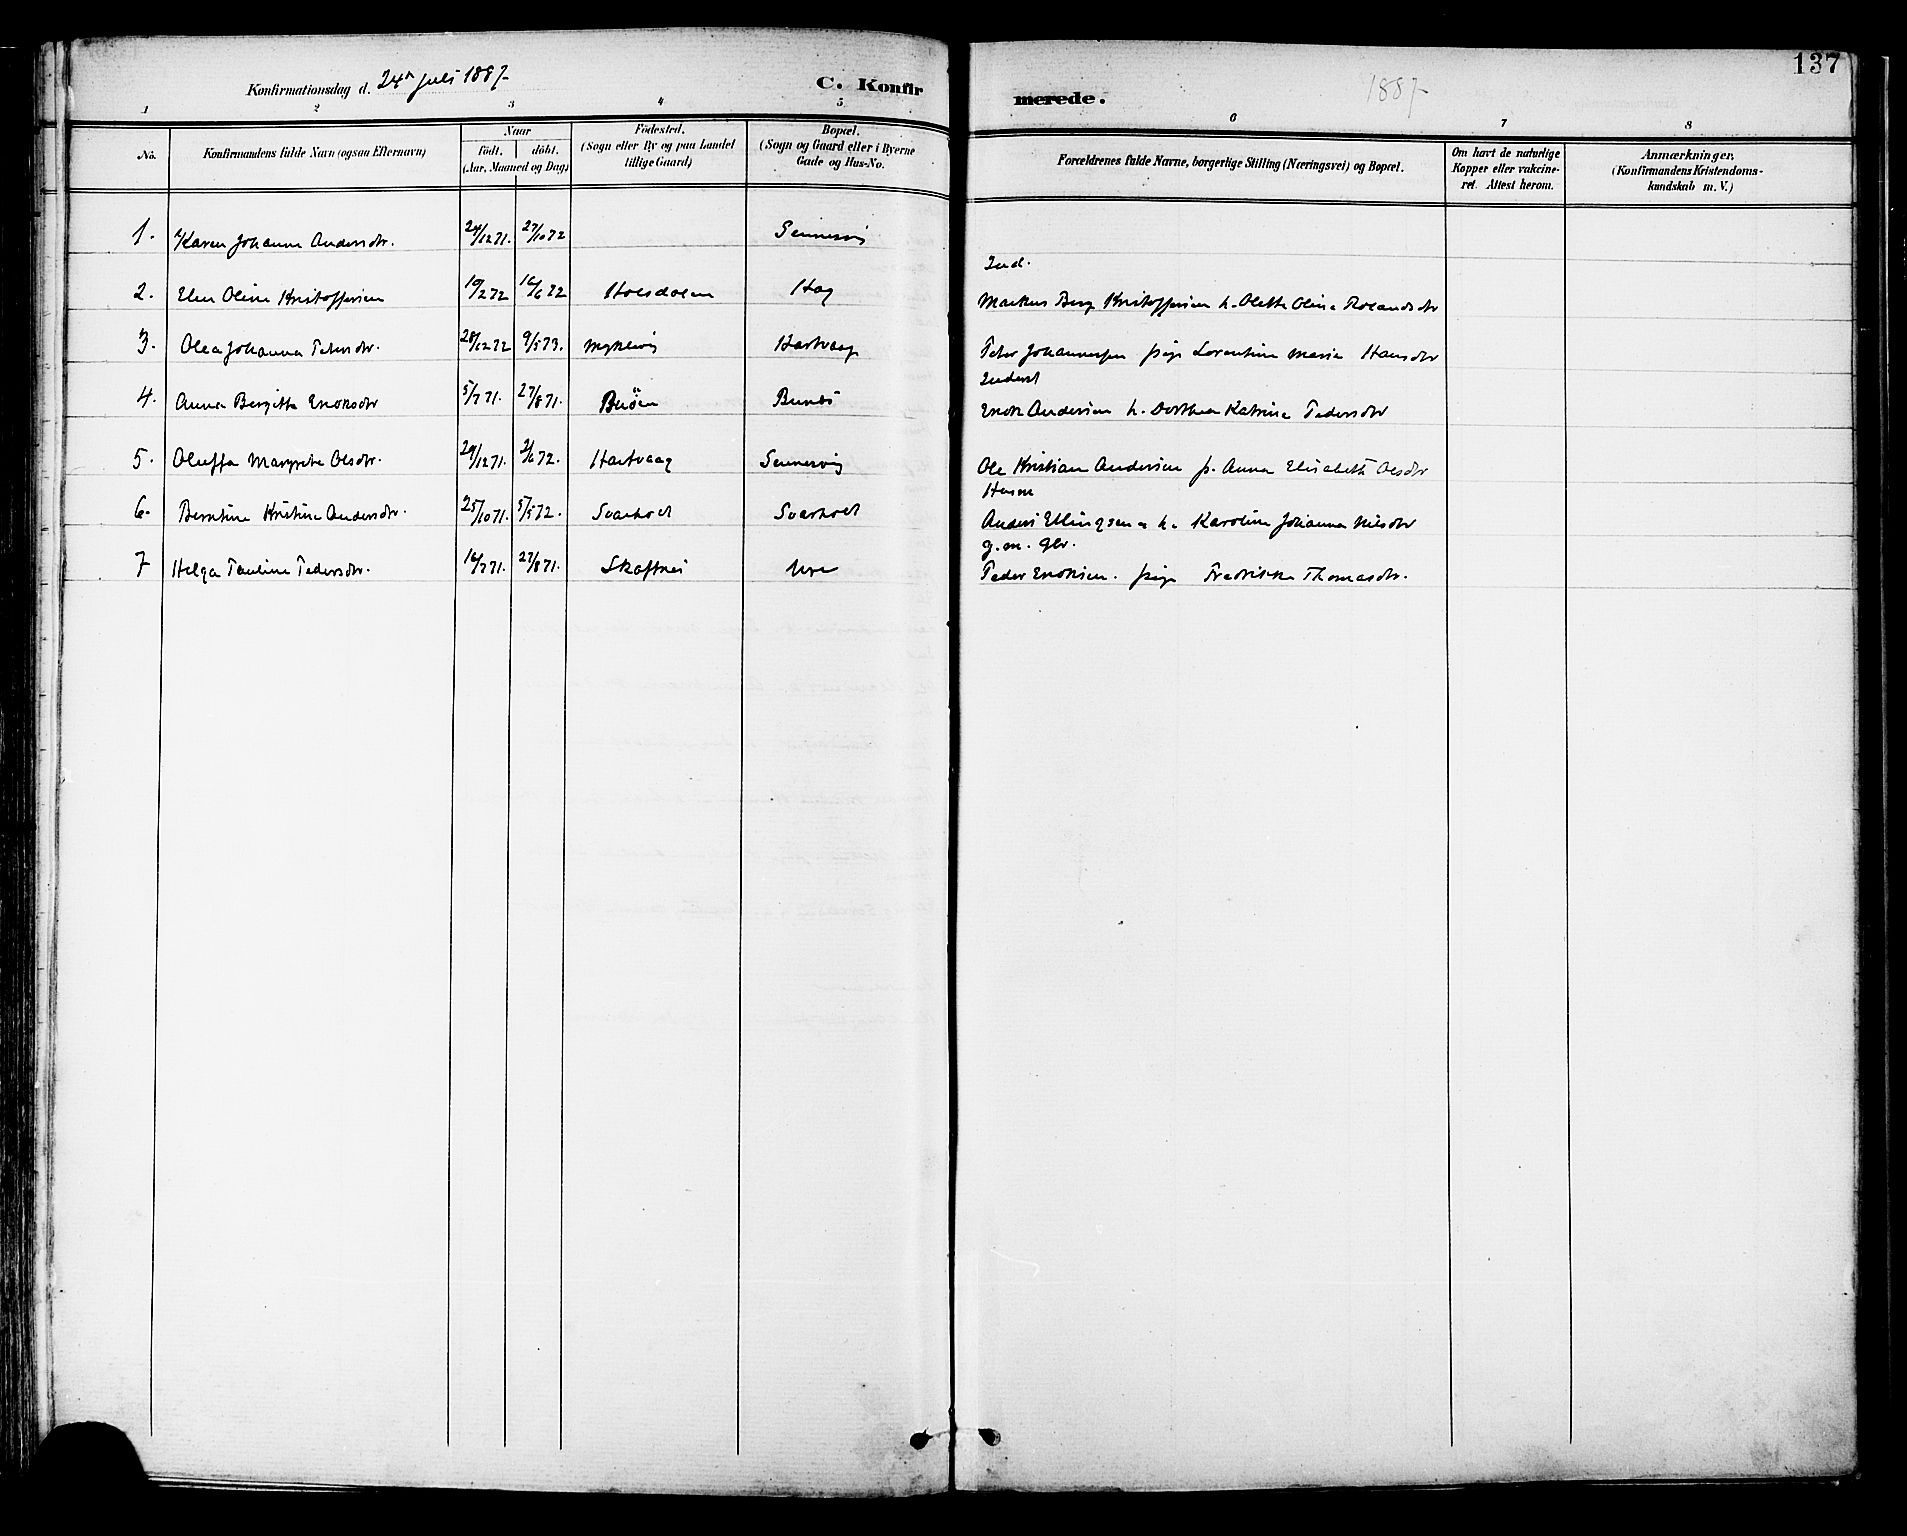 137
Konfirmationsdag d. 24de Juli 1887. C. Konfirmerede. 1887
1 2 3 4 5 6 7 8
No. Konfirmandens fulde Navn (ogsaa Efternavn) Naar födt. döbt. (Aar, Maaned og Dag) Födested. (Sogn eller By og paa Landet tillige Gaard) Bopæl. (Sogn og Gaard eller i Byerne Gade og Hus-No. Forældrenes fulde Navne, borgerlige Stilling (Næringsvei) og Bopæl. Om havt de naturlige Kopper eller vakcineret. Attest herom. Anmærkninger. (Konfirmandens Kristendomskundskab m. V.)
1. Karen Johanna Andersdtr. 24/12 71. 27/10 72 Sennesvig
Ind.
2. Elen Oline Kristoffersen 19/2 72 16/6 72 Holsdalen Hag Markus Berg Kristoffersen h. Olette Olina Rolandsdtr
3. Olea Johanna Petersdtr. 28/12 72 9/5 73. Myklevig Hartvaag Peter Johannessen pige Lorentine Maria Hansdtr
Inderst
4. Anna Bergitte Enoksdtr 5/7 71. 27/8 71. Buöen Bunes Enok Andersen h. Dorthea Katrine Pedersdtr
5. Oluffa Margrete Olsdtr. 29/12 71. 2/6 72. Hartvaag Sennesvig Ole Kristian Andersen p. Anna Elisabeth Olsdtr
Husm
6. Berntine Kristine Andersdtr. 25/10 71. 5/5 72. Svarholt Svarholt Anders Ellingsen h. Karoline Johanna Nilsdtr
g.m. Gbr.
7 Helga Pauline Pedersdtr. 16/7 71. 27/8 71. Skaftnes Ure Peder Enoksen. pige Fredrikke Thomasdtr.